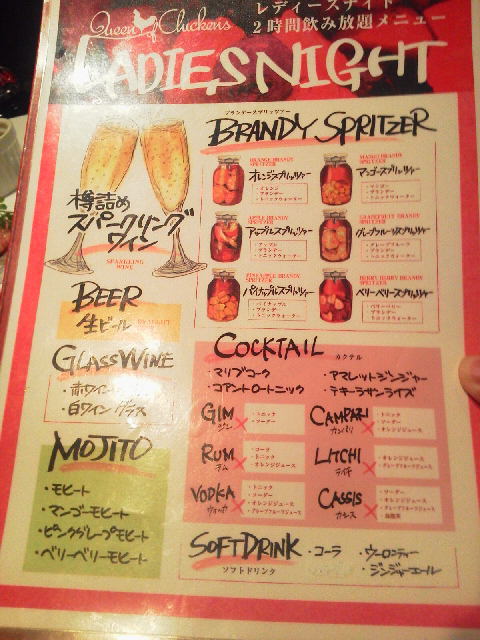 Queen of Chickens
レディースナイト
2時間飲み放題メニュー
LADIES NIGHT
樽詰め
スパークリング
ワイン
SPARKLING
WINE
BEER
生ビール DRAUGHT
GLASS WINE
・赤ワイン
・白ワイン グラス
MOJITO
・モヒート
・マンゴーモヒート
・ピンクグレープモヒート
・ベリーベリーモヒート
ブランデースプリッツァー
BRANDY SPRITZER
ORANGE BRANDY
SPRITZER
オレンジスプリッツァー
・オレンジ
・ブランデー
・トニックウォーター
MANGO BRANDY
SPRITZER
マンゴースプリッツァー
・マンゴー
・ブランデー
・トニックウォーター
APPLE BRANDY
SPRITZER
アップルスプリッツァー
・アップル
・ブランデー
・トニックウォーター
GRAPEFRUIT BRANDY
SPRITZER
グレープフルーツスプリッツァー
・グレープフルーツ
・ブランデー
・トニックウォーター
PINEAPPLE BRANDY
SPRITZER
パイナップルスプリッツァー
・パイナップル
・ブランデー
・トニックウォーター
BERRY BERRY BRANDY
SPRITZER
ベリーベリースプリッツァー
・ベリーベリー
・ブランデー
・トニックウォーター
COCKTAIL カクテル
・マリブコーク
・アマレットジンジャー
・コアントロートニック
・テキーラサンライズ
GIM
ジン
×
・トニック
・ソーダー
CAMPARI
カンパリ
×
・トニック
・ソーダー
・オレンジジュース
RUM
ラム
×
・コーラ
・トニック
・オレンジジュース
LITCHI
ライチ
×
・オレンジジュース
・グレープフルーツジュース
VODKA
ウォッカ
×
・トニック
・ソーダー
・オレンジジュース
・グレープフルーツジュース
CASSIS
カシス
×
・ソーダー
・オレンジジュース
・グレープフルーツジュース
・烏龍茶
SOFT DRINK
ソフトドリンク
・コーラ
・ウーロンティー
・ジンジャーエール